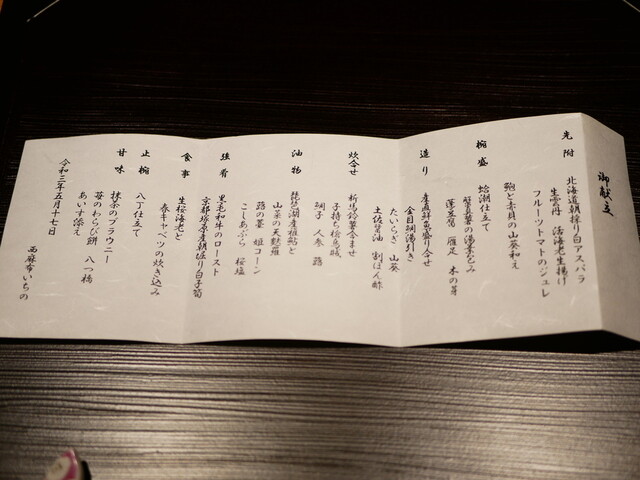 御献立
先附
北海道朝採り白アスパラ
生雲丹 活海老生揚げ
フルーツトマトのジュレ
鮑と赤貝の山葵和え
椀盛
蛤潮仕立て
蟹真薯の湯葉包み
蓬豆腐 雁足 木の芽
造り
産直鮮魚盛り合せ
金目鯛湯引き
たいらぎ 山葵
土佐醤油 割ぽん酢
炊合せ
新馬鈴薯含ませ
子持ち槍烏賊
鯛子 人参 蕗
油物
琵琶湖産稚鮎と
山菜の天麩羅
蕗の薹 姫コーン
こしあぶら 桜塩
強肴
黒毛和牛のロースト
京都塚原産朝堀り白子筍
食事
生桜海老と
春キャベツの炊き込み
止椀
八丁仕立て
甘味
抹茶のブラウニー
苺のわらび餅 八つ橋
あいす添え
令和三年五月十七日
西麻布いちの